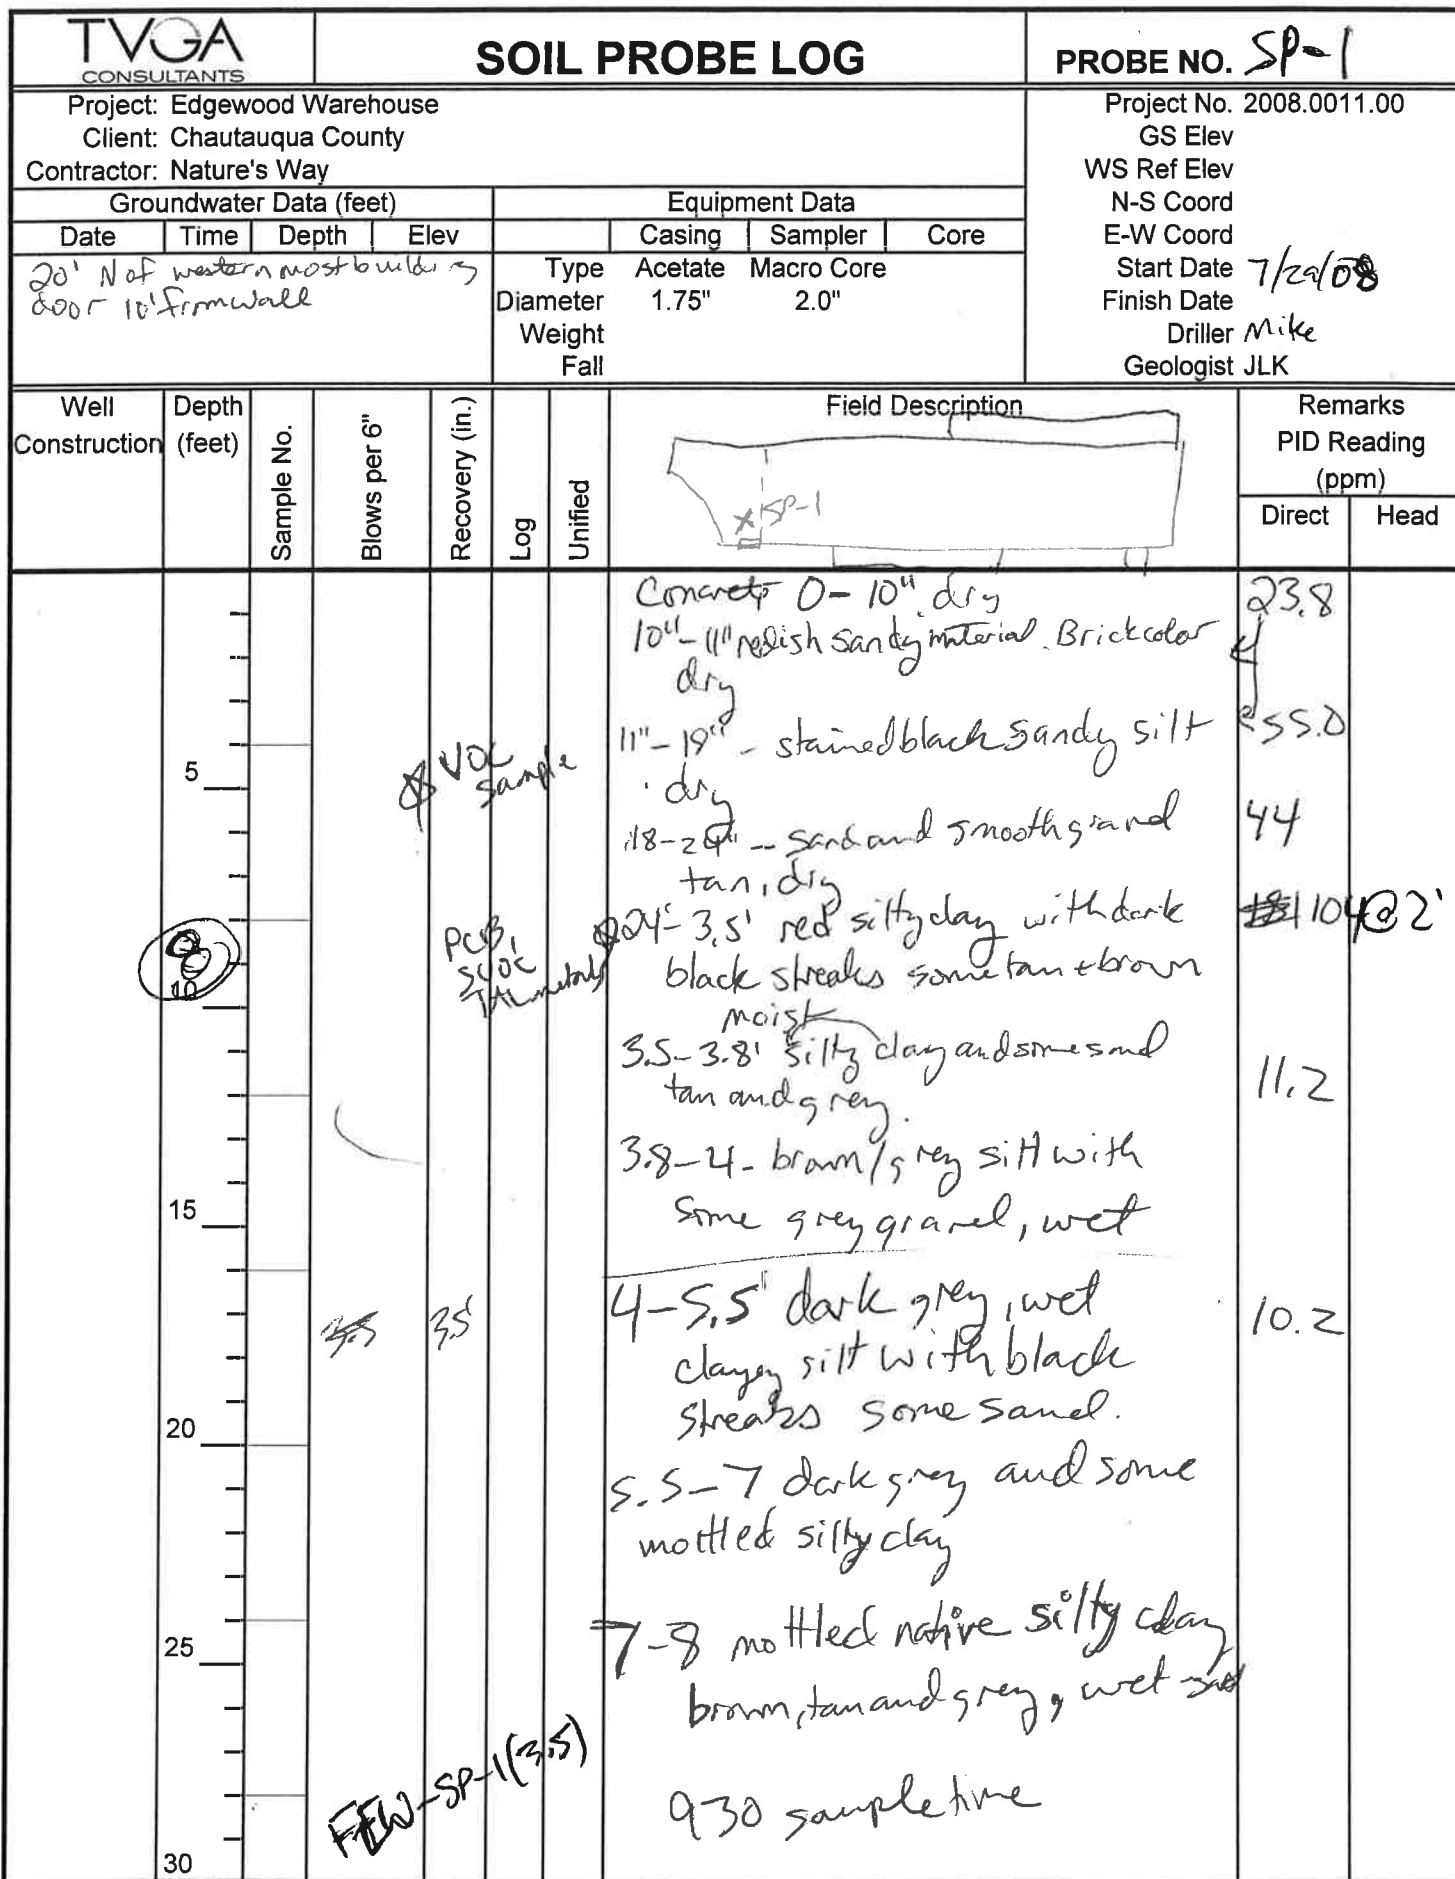 TVGA
CONSULTANTS
SOIL PROBE LOG
PROBE NO. SP-1
Project: Edgewood Warehouse
Client: Chautauqua County
Contractor: Nature's Way
Project No. 2008.0011.00
GS Elev
WS Ref Elev
N-S Coord
E-W Coord
Start Date 7/29/08
Finish Date
Driller Mike
Geologist JLK
Groundwater Data (feet)
Date Time Depth Elev
20' N of western most building
door 10' from wall
Equipment Data
Casing Sampler Core
Type Acetate Macro Core
Diameter 1.75" 2.0"
Weight
Fall
Well Construction
Depth (feet)
Sample No.
Blows per 6"
Recovery (in.)
Log
Unified
Field Description
SP-1
Remarks
PID Reading
(ppm)
Direct Head
Concrete 0-10" dry 23.8
10"-11" redish sandy material. Brick color
dry
11"-19" - stained black sandy silt 55.0
dry
5
VOC
sample
18-24" -- sand and smooth gravel 44
tan, dry
24"-3.5' red silty clay with dark 104@2'
black streaks some tan + brown
moist
PCB,
SVOC
TAL metals
10
3.5-3.8' silty clay and some sand
tan and grey. 11.2
3.8-4- brown/grey silt with
some grey gravel, wet
15
4-5.5' dark grey, wet 10.2
clayey silt with black
streaks some sand.
3.5 3.5'
20
5.5-7 dark grey and some
mottled silty clay
7-8 mottled native silty clay
brown, tan and grey, wet
25
FEW-SP-1(3.5)
930 sample time
30